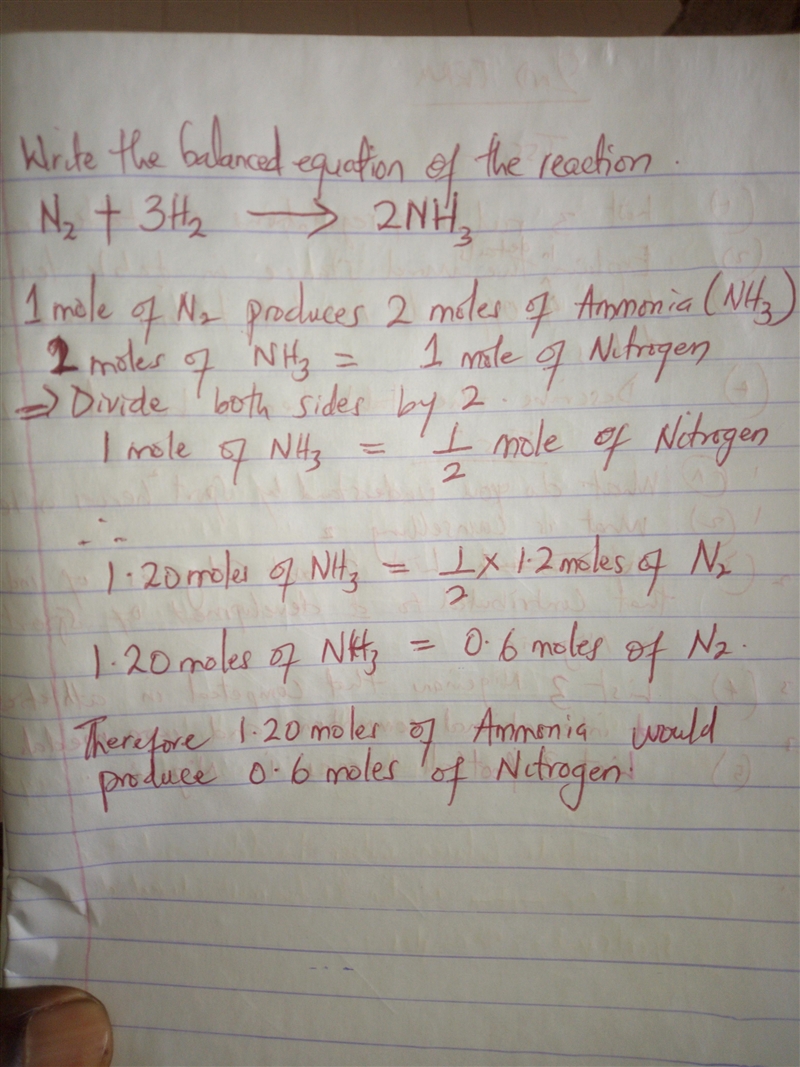 Write the balanced equation of the reaction.
N₂ + 3H₂ ⟶ 2NH₃
1 mole of N₂ produces 2 moles of Ammonia (NH₃)
2 moles of NH₃ = 1 mole of Nitrogen
⇒ Divide both sides by 2.
1 mole of NH₃ = 1/2 mole of Nitrogen
∴
1.20 moles of NH₃ = 1/2 × 1.2 moles of N₂
1.20 moles of NH₃ = 0.6 moles of N₂.
Therefore 1.20 moles of Ammonia would
produce 0.6 moles of Nitrogen.